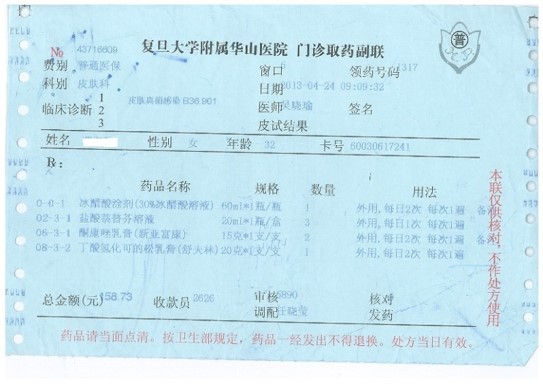 复旦大学附属华山医院 门诊取药副联
普
№ 43716609
费别 普通医保 窗口 领药号码 1317
科别 皮肤科 日期 2013-04-24 09:09:32
临床诊断 1 皮肤真菌感染 B36.901 医师 吴晓瑜 签名
2
3 皮试结果
姓名 性别 女 年龄 32 卡号 60030617241
R:
药品名称 规格 数量 用法
0-0-1 冰醋酸涂剂(30%冰醋酸溶液) 60ml*1瓶/瓶 1 外用,每日2次 每次1遍 备注
02-3-1 盐酸萘替芬溶液 20ml*1瓶/盒 3 外用,每日1次 每次1遍
06-3-1 酮康唑乳膏(新亚富康) 15克*1支/支 2 外用,每日1次 每次1遍 备注
08-3-2 丁酸氢化可的松乳膏(舒夫林) 20克*1支/支 1 外用,每日2次 每次1遍
总金额(元) 158.73 收款员 2626 审核 6890 核对
调配 汪晓莹 发药
药品请当面点清。按卫生部规定，药品一经发出不得退换。处方当日有效。
本联仅供核对，不作处方使用